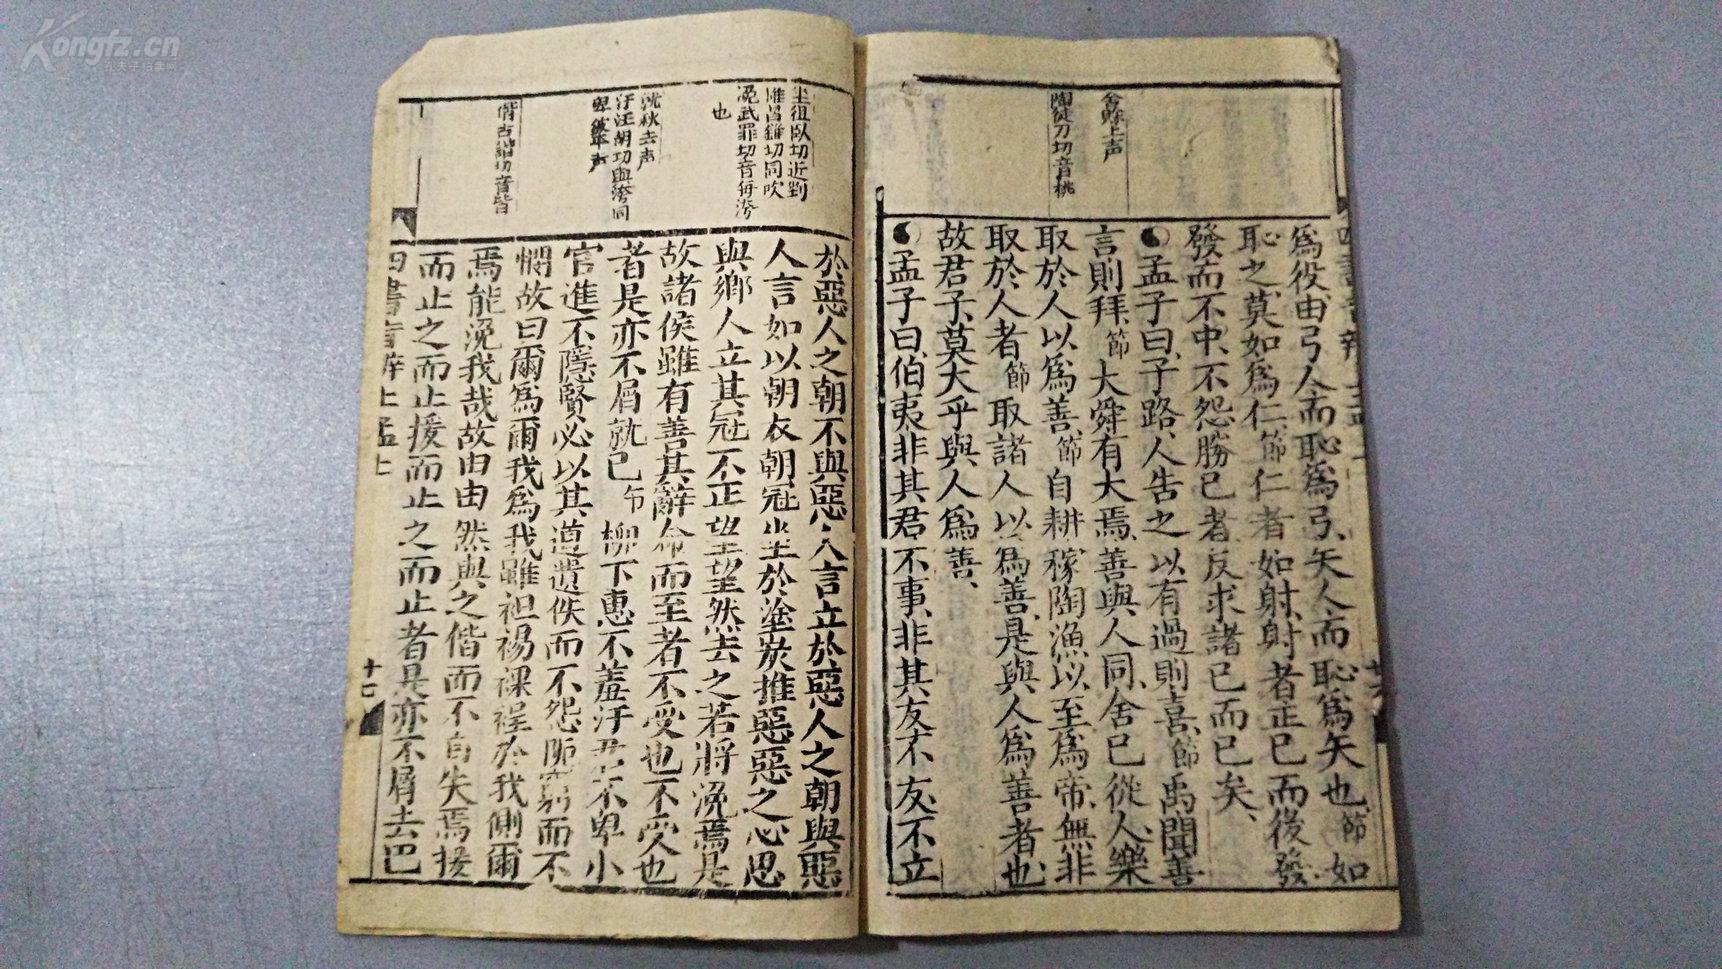 Kongfz.cn
舍餘上声
陶徒刀切音桃
為役由弓人而恥為弓矢人而恥為矢也節如
恥之莫如為仁節仁者如射射者正已而後發
發而不中不怨勝已者反求諸已而已矣
孟子曰子路人告之以有過則喜節禹聞善
言則拜節大舜有大焉善與人同舍已從人樂
取於人以為善節自耕稼陶漁以至為帝無非
取於人者節取諸人以為善是與人為善者也
故君子莫大乎與人為善
孟子曰伯夷非其君不事非其友不友不立
坐徂臥切近剉
推昌錐切同吹
浼武罪切音每洿
也
就秋去声
汙汪胡切與洿同
卑上声
偕古諧切音皆
於惡人之朝不與惡人言立於惡人之朝與惡
人言如以朝衣朝冠坐於塗炭推惡惡之心思
與鄉人立其冠不正望望然去之若將浼焉是
故諸侯雖有善其辭命而至者不受也不受也
者是亦不屑就已節柳下惠不羞汙君不卑小
官進不隱賢必以其道遺佚而不怨阨窮而不
憫故曰爾為爾我為我雖袒裼裸裎於我側爾
焉能浼我哉故由由然與之偕而不自失焉援
而止之而止援而止之而止者是亦不屑去已
四書音辨上孟上
十七